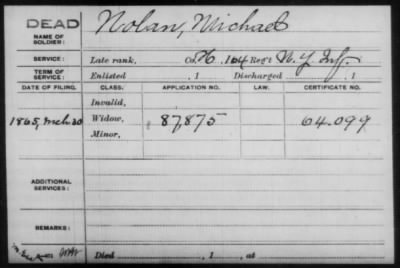 DEAD
NAME OF SOLDIER: Nolan, Michael
SERVICE: Late rank, Co. K, 164 Reg't N.Y. Inf.
TERM OF SERVICE: Enlisted , 1 Discharged , 1
DATE OF FILING. CLASS. APPLICATION NO. LAW. CERTIFICATE NO.
Invalid,
1865, Mch 20 Widow, 87,875 64.099
Minor,
ADDITIONAL SERVICES:
REMARKS:
Died , 1 , at